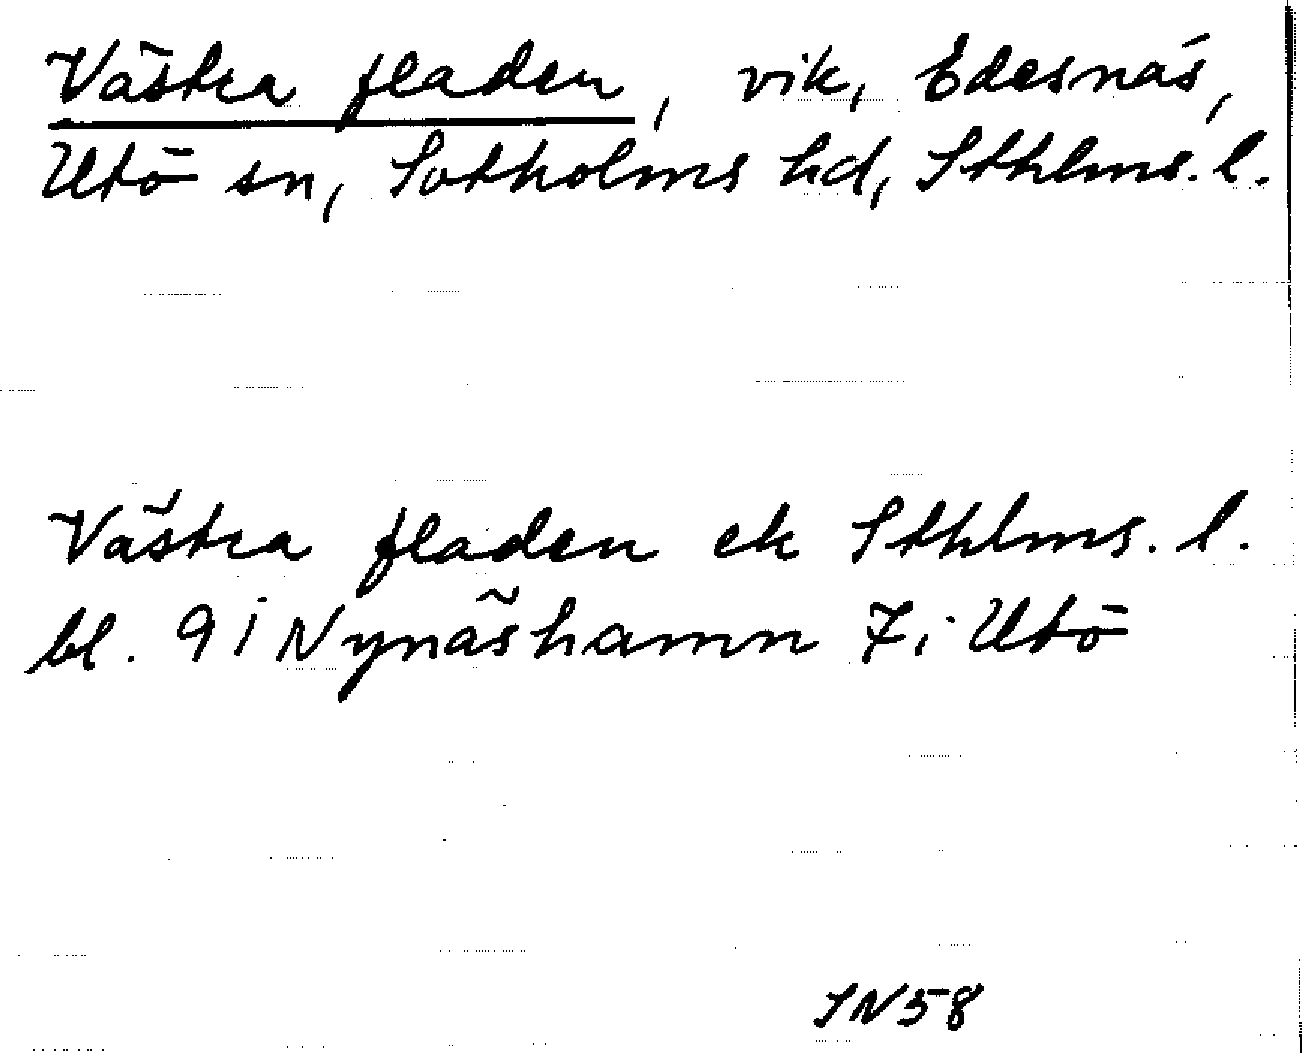 Västra fladen, vik, Edesnäs,
Utö sn, Sotholms hd, Sthlms. l.
Västra fladen ek Sthlms. l.
bl. 9 i Nynäshamn 7 i Utö
SN58